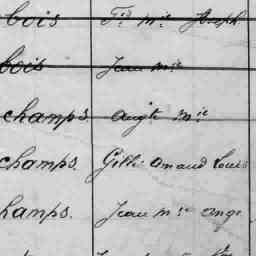 bois Fs. Mie. Joseph
bois Jean Mie
champs. Augte Mie
champs. Gille Amand Louis
hamps. Jean Mie Ange